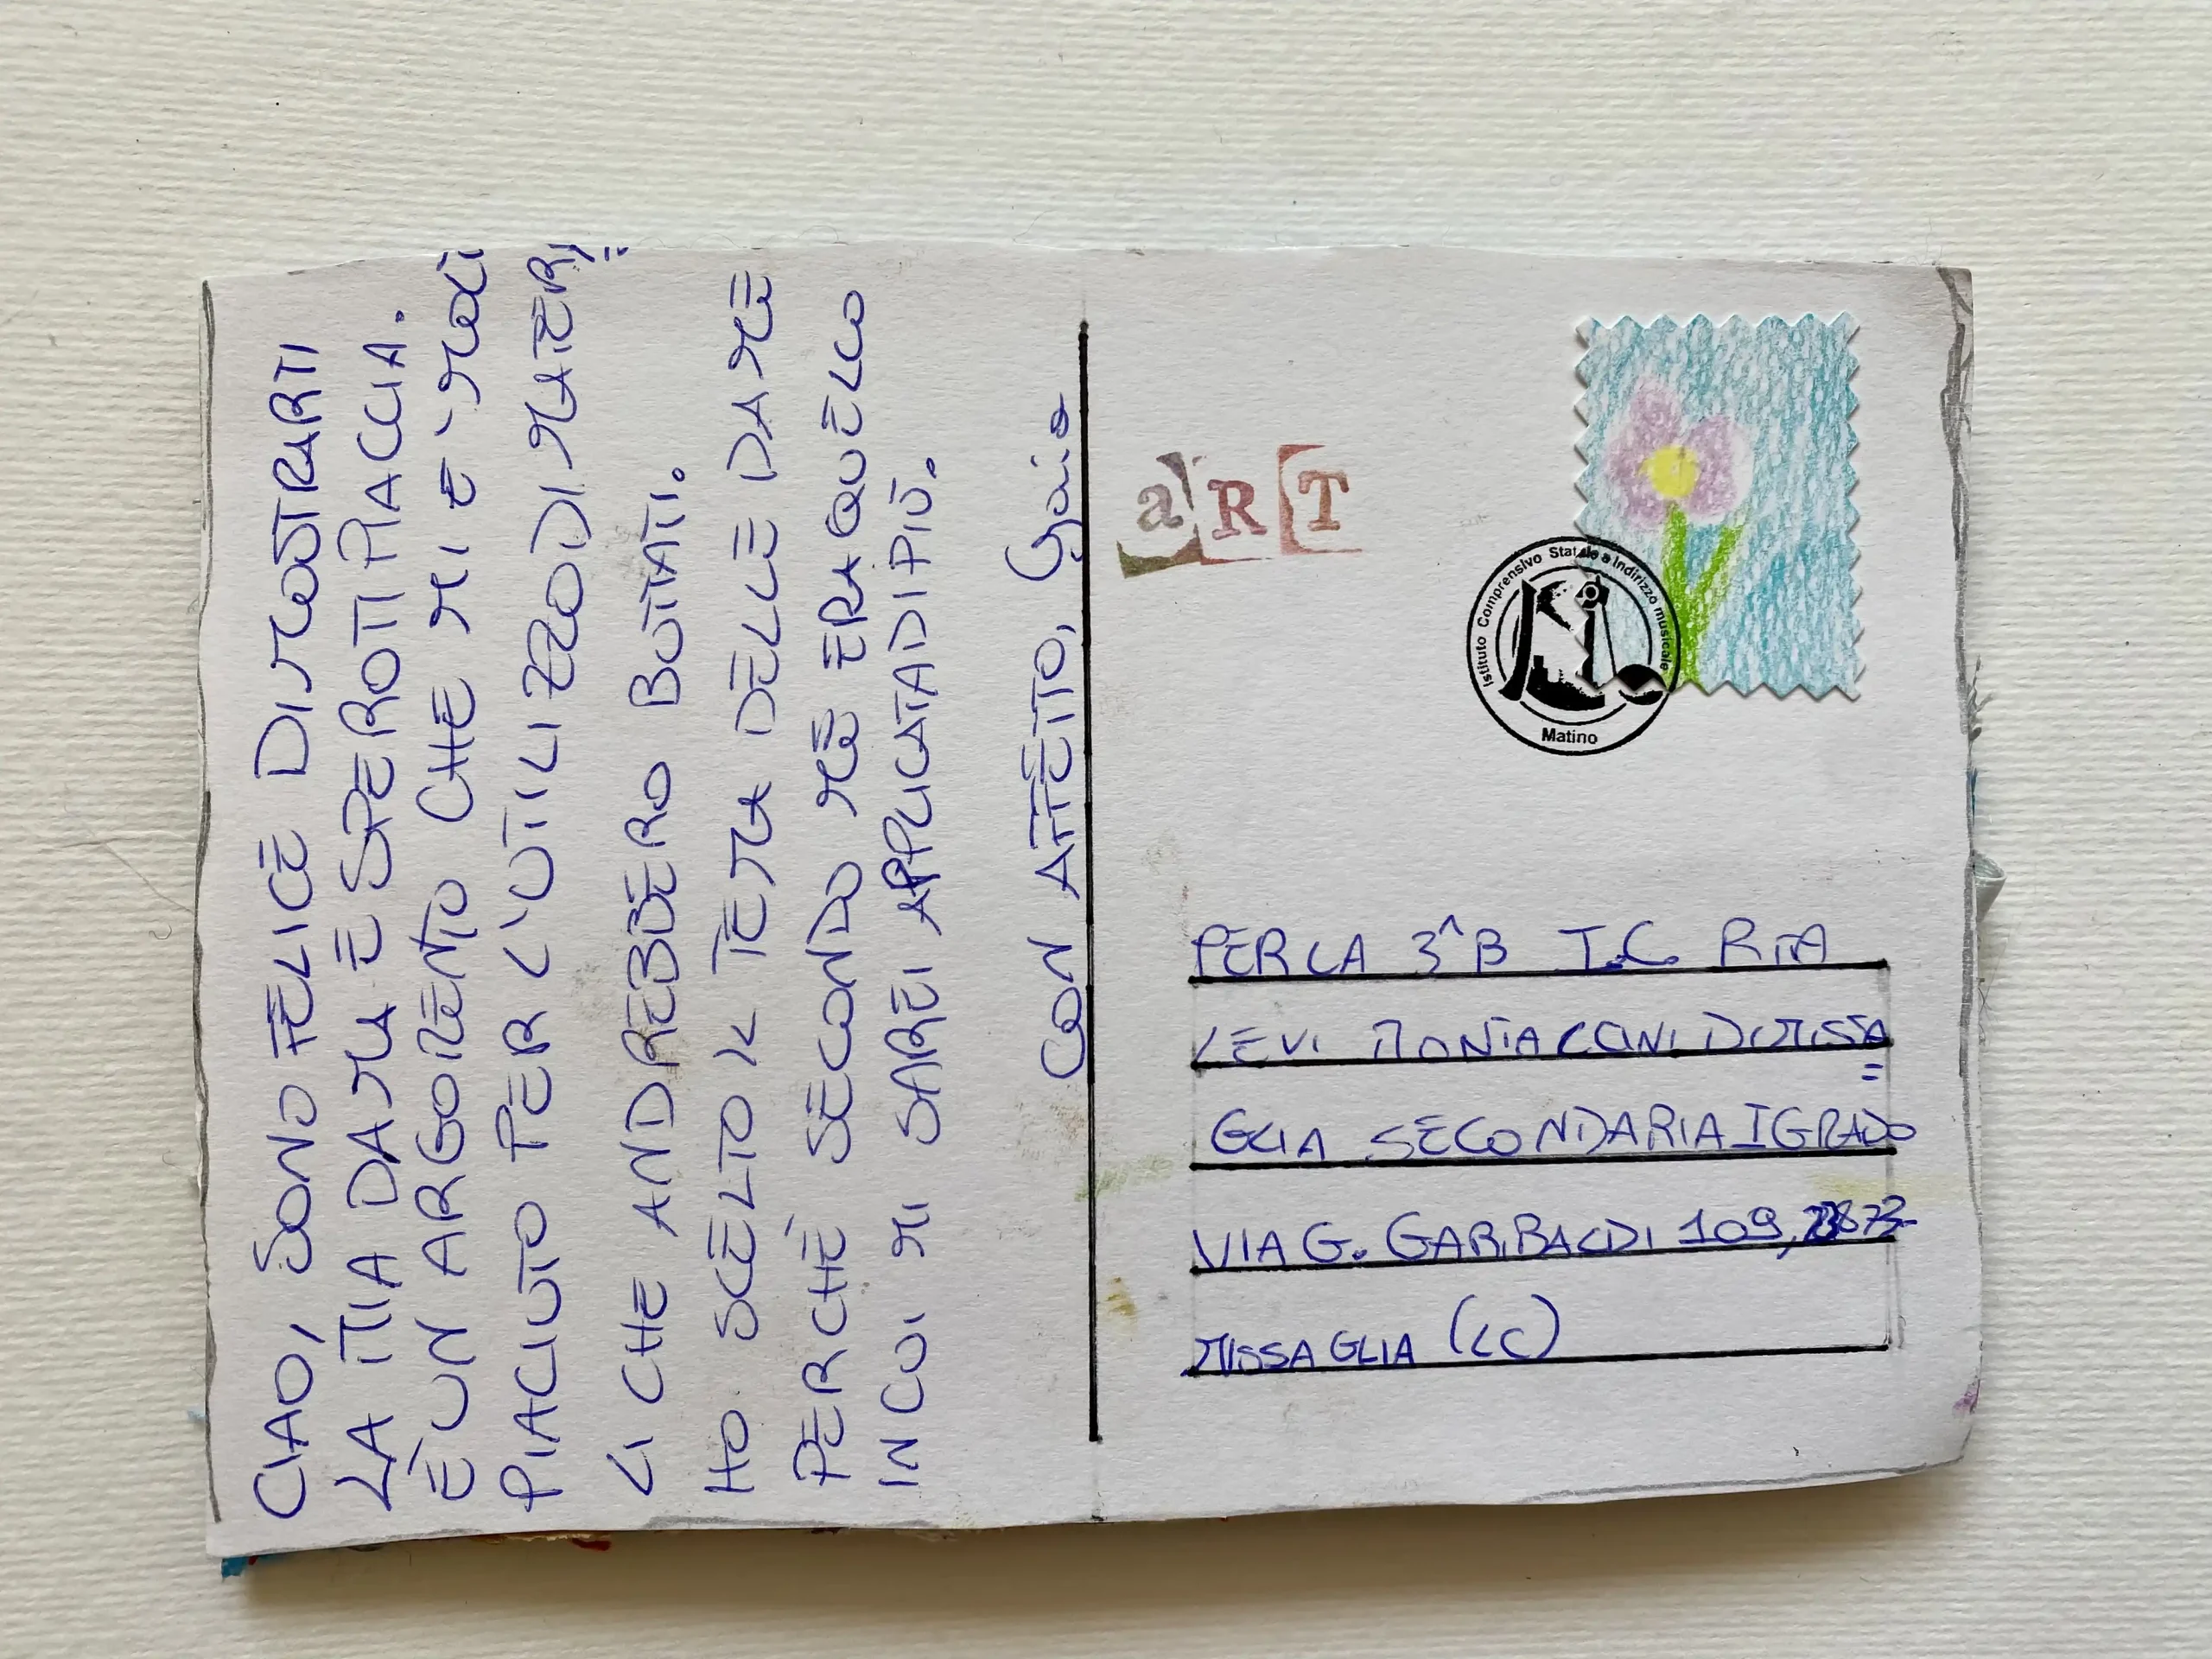 CIAO, SONO FELICE DI MOSTRARTI
LA MIA DAMA E SPERO TI PIACCIA.
È UN ARGOMENTO CHE MI E'
PIACIUTO PER L'UTILIZZO DI MATERIA=
LI CHE ANDREBBERO BUTTATI.
HO SCELTO IL TEMA DELLE DAME
PERCHÈ SECONDO ME ERA QUELLO
IN CUI MI SAREI APPLICATA DI PIÙ.
CON AFFETTO, Gaia
aRT
Istituto Comprensivo Statale a Indirizzo musicale
Matino
PER LA 3^B I.C. RITA
LEVI MONTALCINI DI MISSA=
GLIA SECONDARIA I GRADO
VIA G. GARIBALDI 109, 23873
MISSAGLIA (LC)